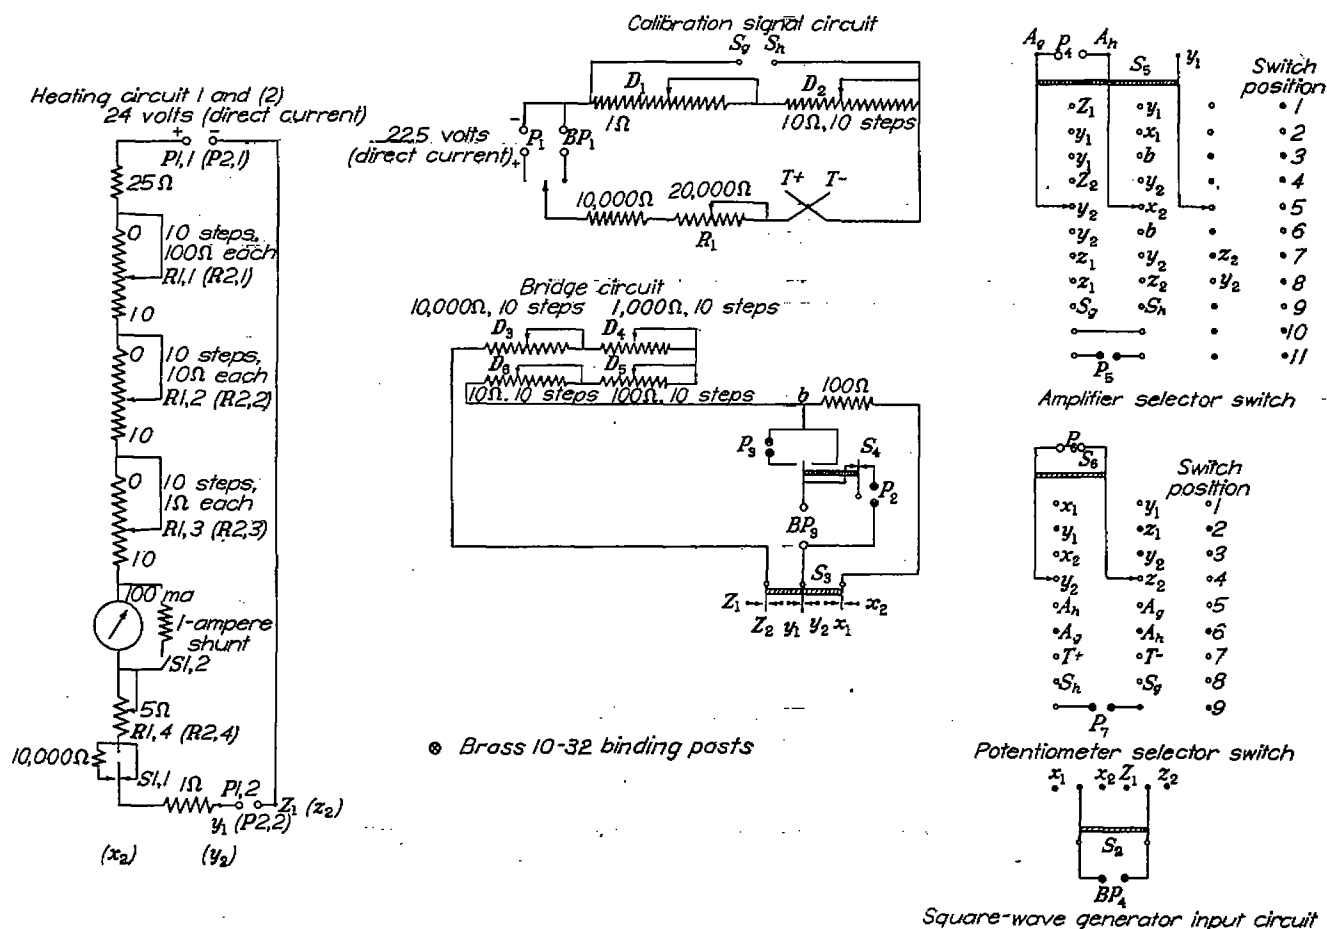 Heating circuit 1 and (2)
24 volts (direct current)
+ −
P1,1 (P2,1)
25Ω
0
10 steps,
100Ω each
R1,1 (R2,1)
10
0
10 steps,
10Ω each
R1,2 (R2,2)
10
0
10 steps,
1Ω each
R1,3 (R2,3)
10
100 ma
1-ampere
shunt
S1,2
5Ω
R1,4 (R2,4)
10,000Ω
S1,1
1Ω
P1,2
Z1 (z2)
y1 (P2,2)
(x2)
(y2)
Calibration signal circuit
Sg Sh
D1
D2
1Ω
10Ω, 10 steps
22.5 volts
(direct current)
−
+
P1
BP1
10,000Ω
20,000Ω
R1
T+ T−
Bridge circuit
10,000Ω, 10 steps 1,000Ω, 10 steps
D3 D4
D6 D5
10Ω, 10 steps 100Ω, 10 steps
b
100Ω
P3
S4
P2
BP3
S3
Z1 x2
Z2 y1 y2 x1
⊗ Brass 10-32 binding posts
Ag P4 Ah
S5
y1
Switch
position
Z1 y1 1
y1 x1 2
y1 b 3
Z2 y2 4
y2 x2 5
y2 b 6
z1 y2 z2 7
z1 z2 y2 8
Sg Sh 9
10
P5 11
Amplifier selector switch
P6
S6
Switch
position
x1 y1 1
y1 z1 2
x2 y2 3
y2 z2 4
Ah Ag 5
Ag Ah 6
T+ T− 7
Sh Sg 8
P7 9
Potentiometer selector switch
x1 x2 Z1 z2
S2
BP4
Square-wave generator input circuit